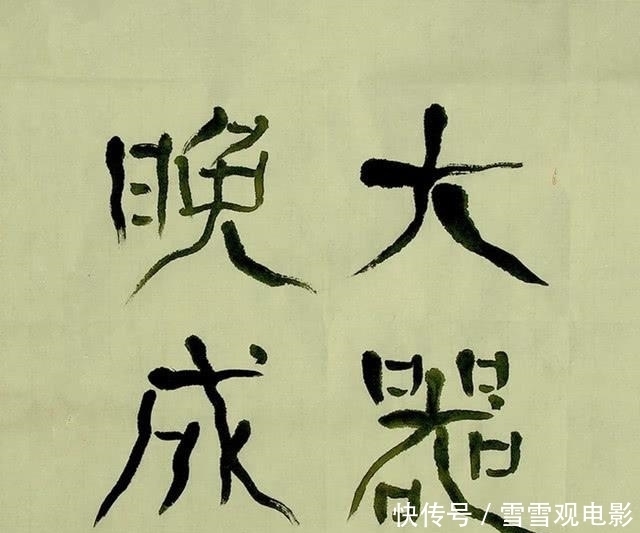 大器
晚成
快传号/雪雪观电影